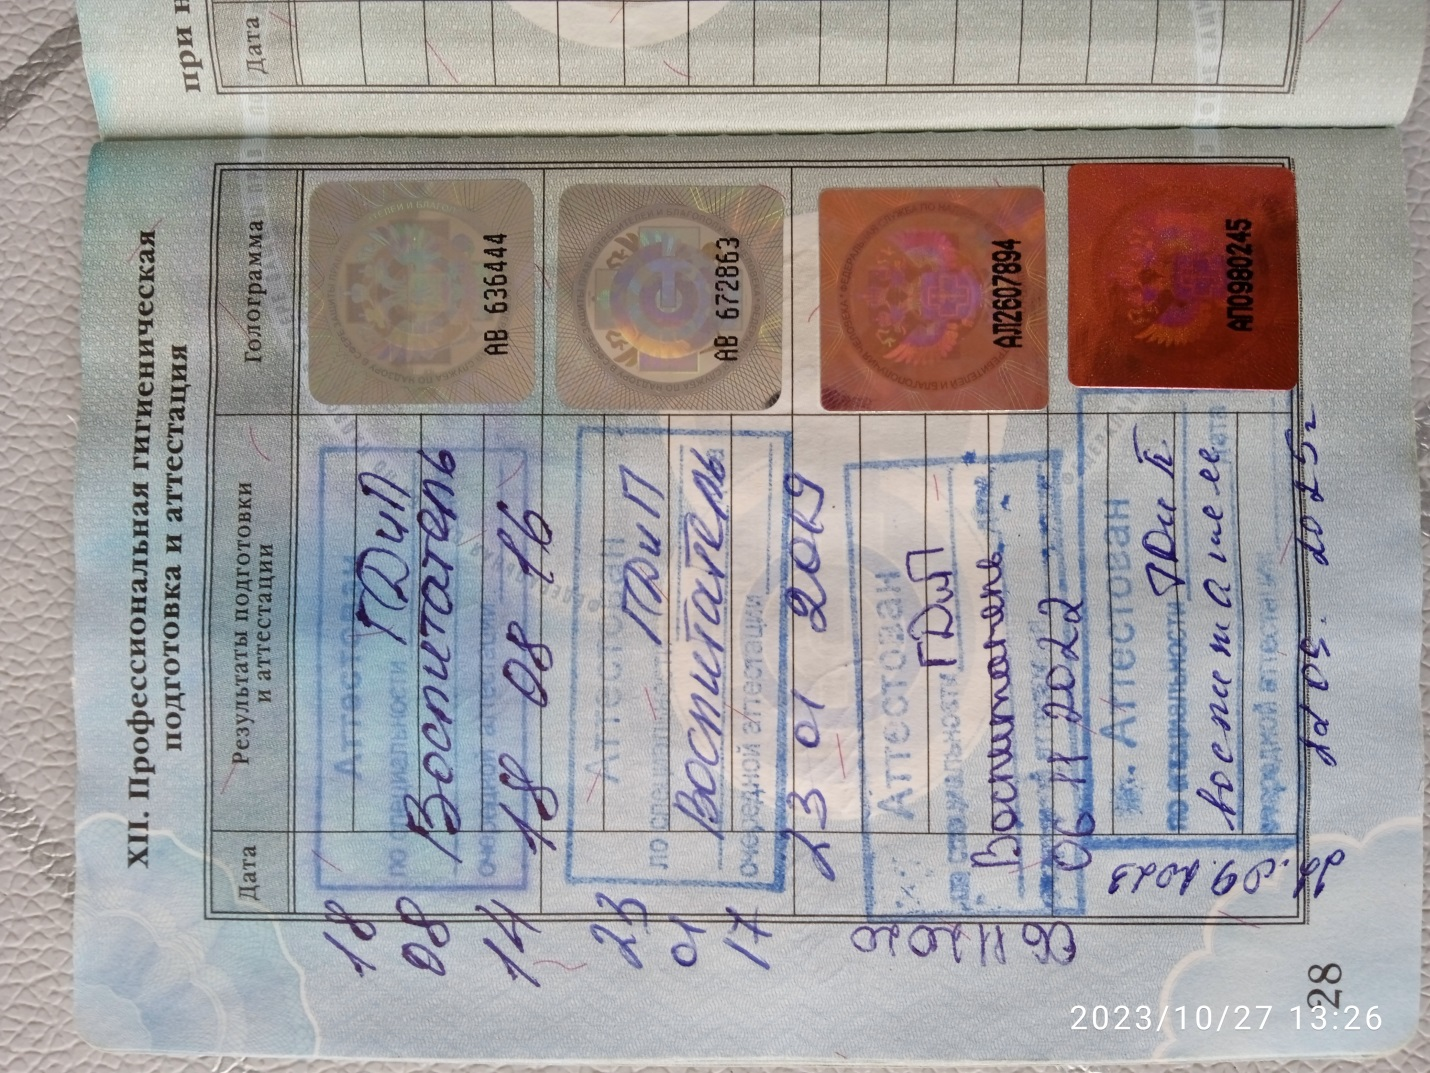 при
Дата
XII. Профессиональная гигиеническая
подготовка и аттестация
Дата
Результаты подготовки
и аттестации
Голограмма
18
08
14
Аттестован
по специальности ГДиП
Воспитатель
очередной аттестации
18 08 16
АВ 636444
23
01
17
Аттестован
по специальности ПДиП
Воспитатель
очередной аттестации
23 01 2019
АВ 672863
06
11
2020
Аттестован
по специальности ГДиП
Воспитатель
06 11 2022
АЛ2607894
09.2023
Аттестован
по специальности
воспитател
дата
очередной аттестации
09. 2025г
АП0980245
28
2023/10/27 13:26